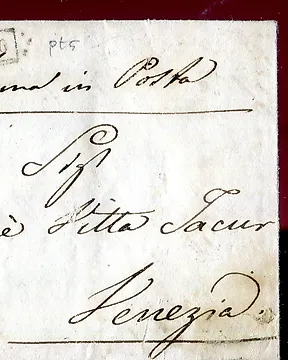 pts
in Posta
Sigr
Vitta Jacur
Venezia.